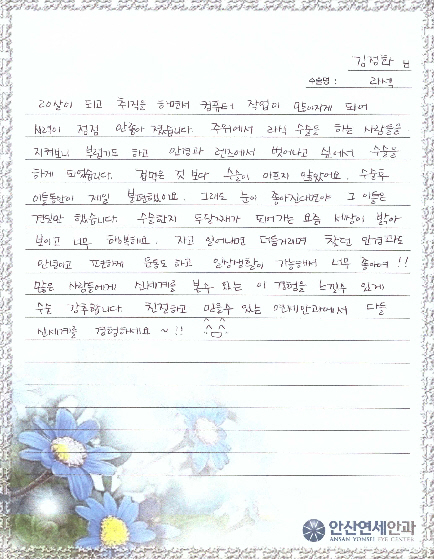 김정화 님
수술명 : 라식
20살이 되고 취직을 하면서 컴퓨터 작업이 많아지게 되어
시력이 점점 안좋아 졌습니다. 주위에서 라식 수술을 하는 사람들을
지켜보니 부럽기도 하고 안경과 렌즈에서 벗어나고 싶어서 수술을
하게 되었습니다. 겁먹은 것 보다 수술이 아프지 않았어요. 수술후
이틀동안이 제일 불편했어요. 그래도 눈이 좋아진다보야 그 이틀은
견딜만 했습니다. 수술한지 두달째가 되어가는 요즘 세상이 밝아
보이고 너무 행복해요. 자고 일어나면 더듬거리며 찾던 안경과도
안녕이고 편하게 운동도 하고 일상생활이 가능해서 너무 좋아여!!
많은 사람들에게 신세계를 볼수 있는 이 경험을 느낄수 있게
수술 강추합니다. 친절하고 믿을수 있는 연세안과에서 다들
신세계를 경험하세요 ~ !! ^^
안산연세안과
ANSAN YONSEI EYE CENTER